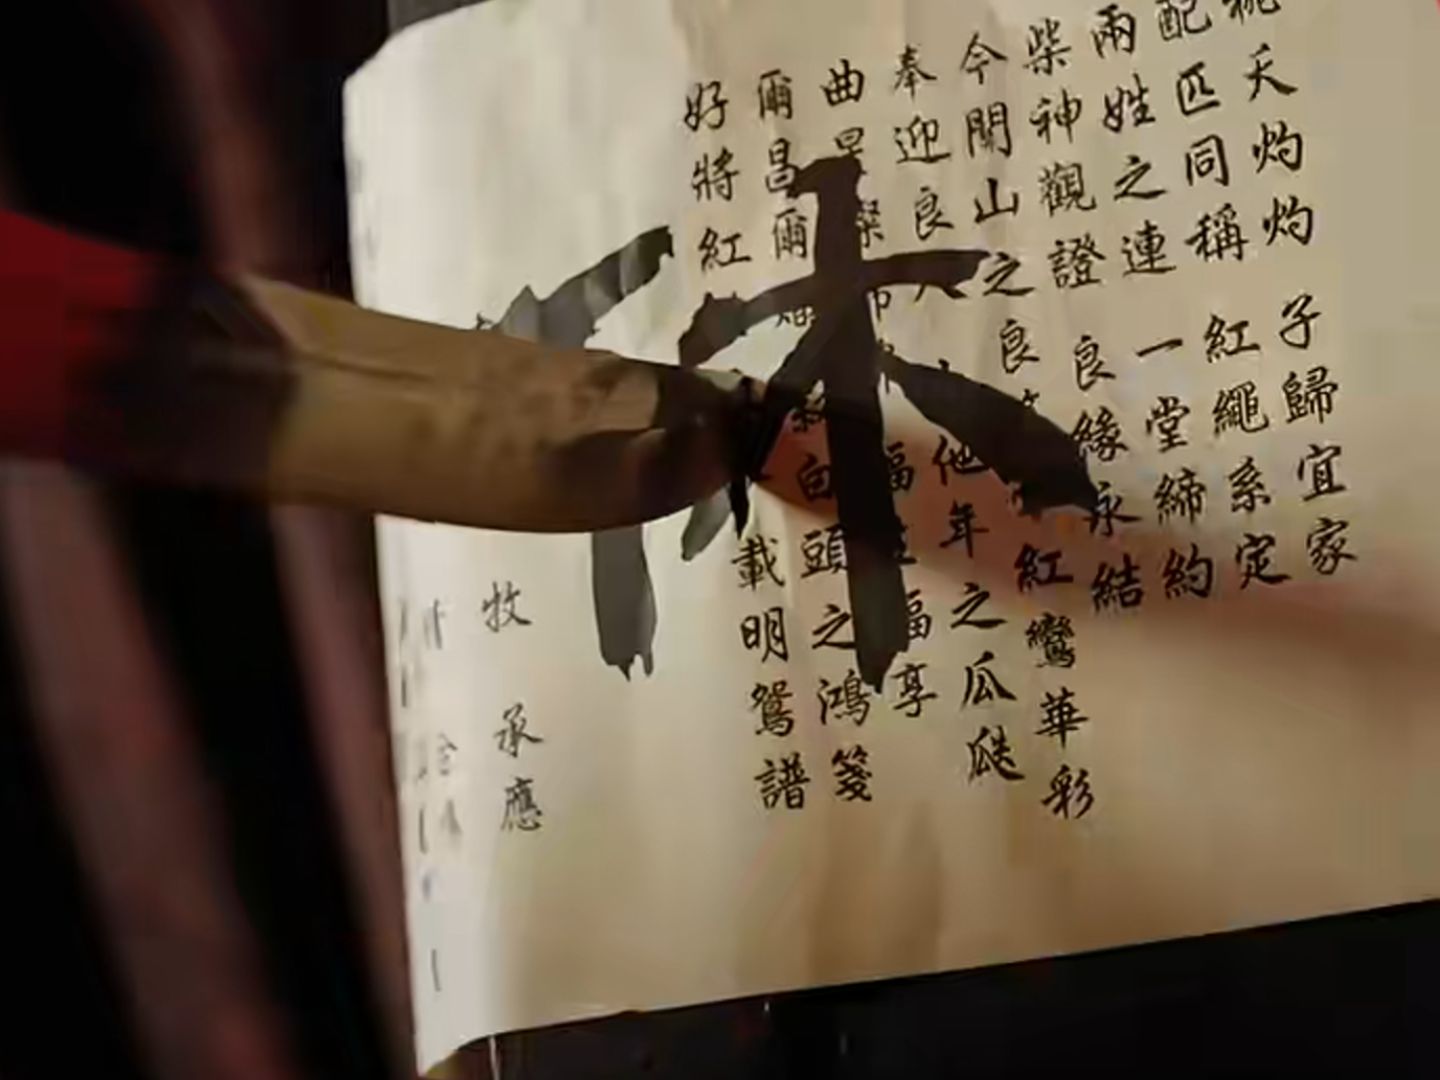 桃夭灼灼 子歸宜家
配匹同稱 紅繩系定
兩姓之連 一堂締約
柴神觀證 良緣永結
今開山之良 紅鸞華彩
奉迎良人 他年之瓜瓞
曲 福 福享
爾昌爾 白頭之鴻箋
好將紅 載明鴛譜
牧 承應
休